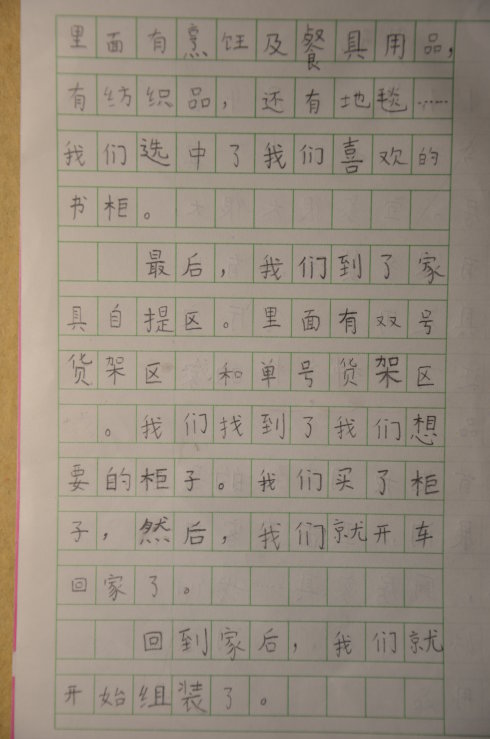 里面有烹饪及餐具用品，
有纺织品，还有地毯……
我们选中了我们喜欢的
书柜。
最后，我们到了家
具自提区。里面有双号
货架区 和单号货架区
。我们找到了我们想
要的柜子。我们买了柜
子，然后，我们就开车
回家了。
回到家后，我们就
开始组装了。